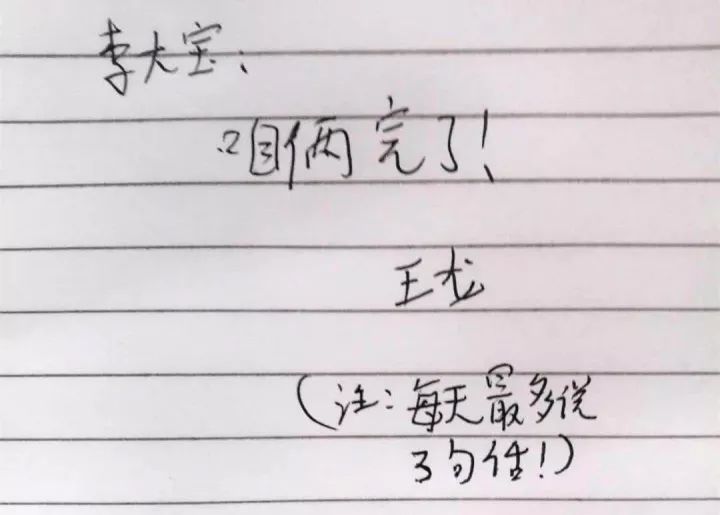 李大宝:
咱俩完了!
王龙
(注:每天最多说
3句话!)